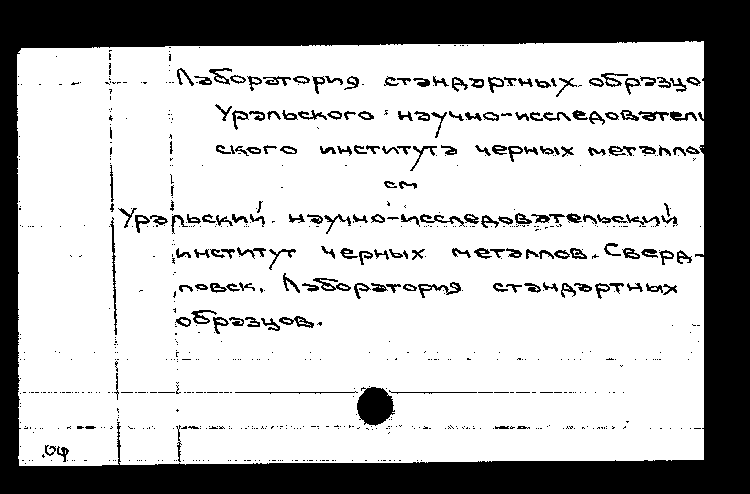 Лаборатория стандартных образцо
Уральского научно-исследователь
ского института черных металлов
см
Уральский научно-исследовательский
институт черных металлов. Сверд-
ловск. Лаборатория стандартных
образцов.